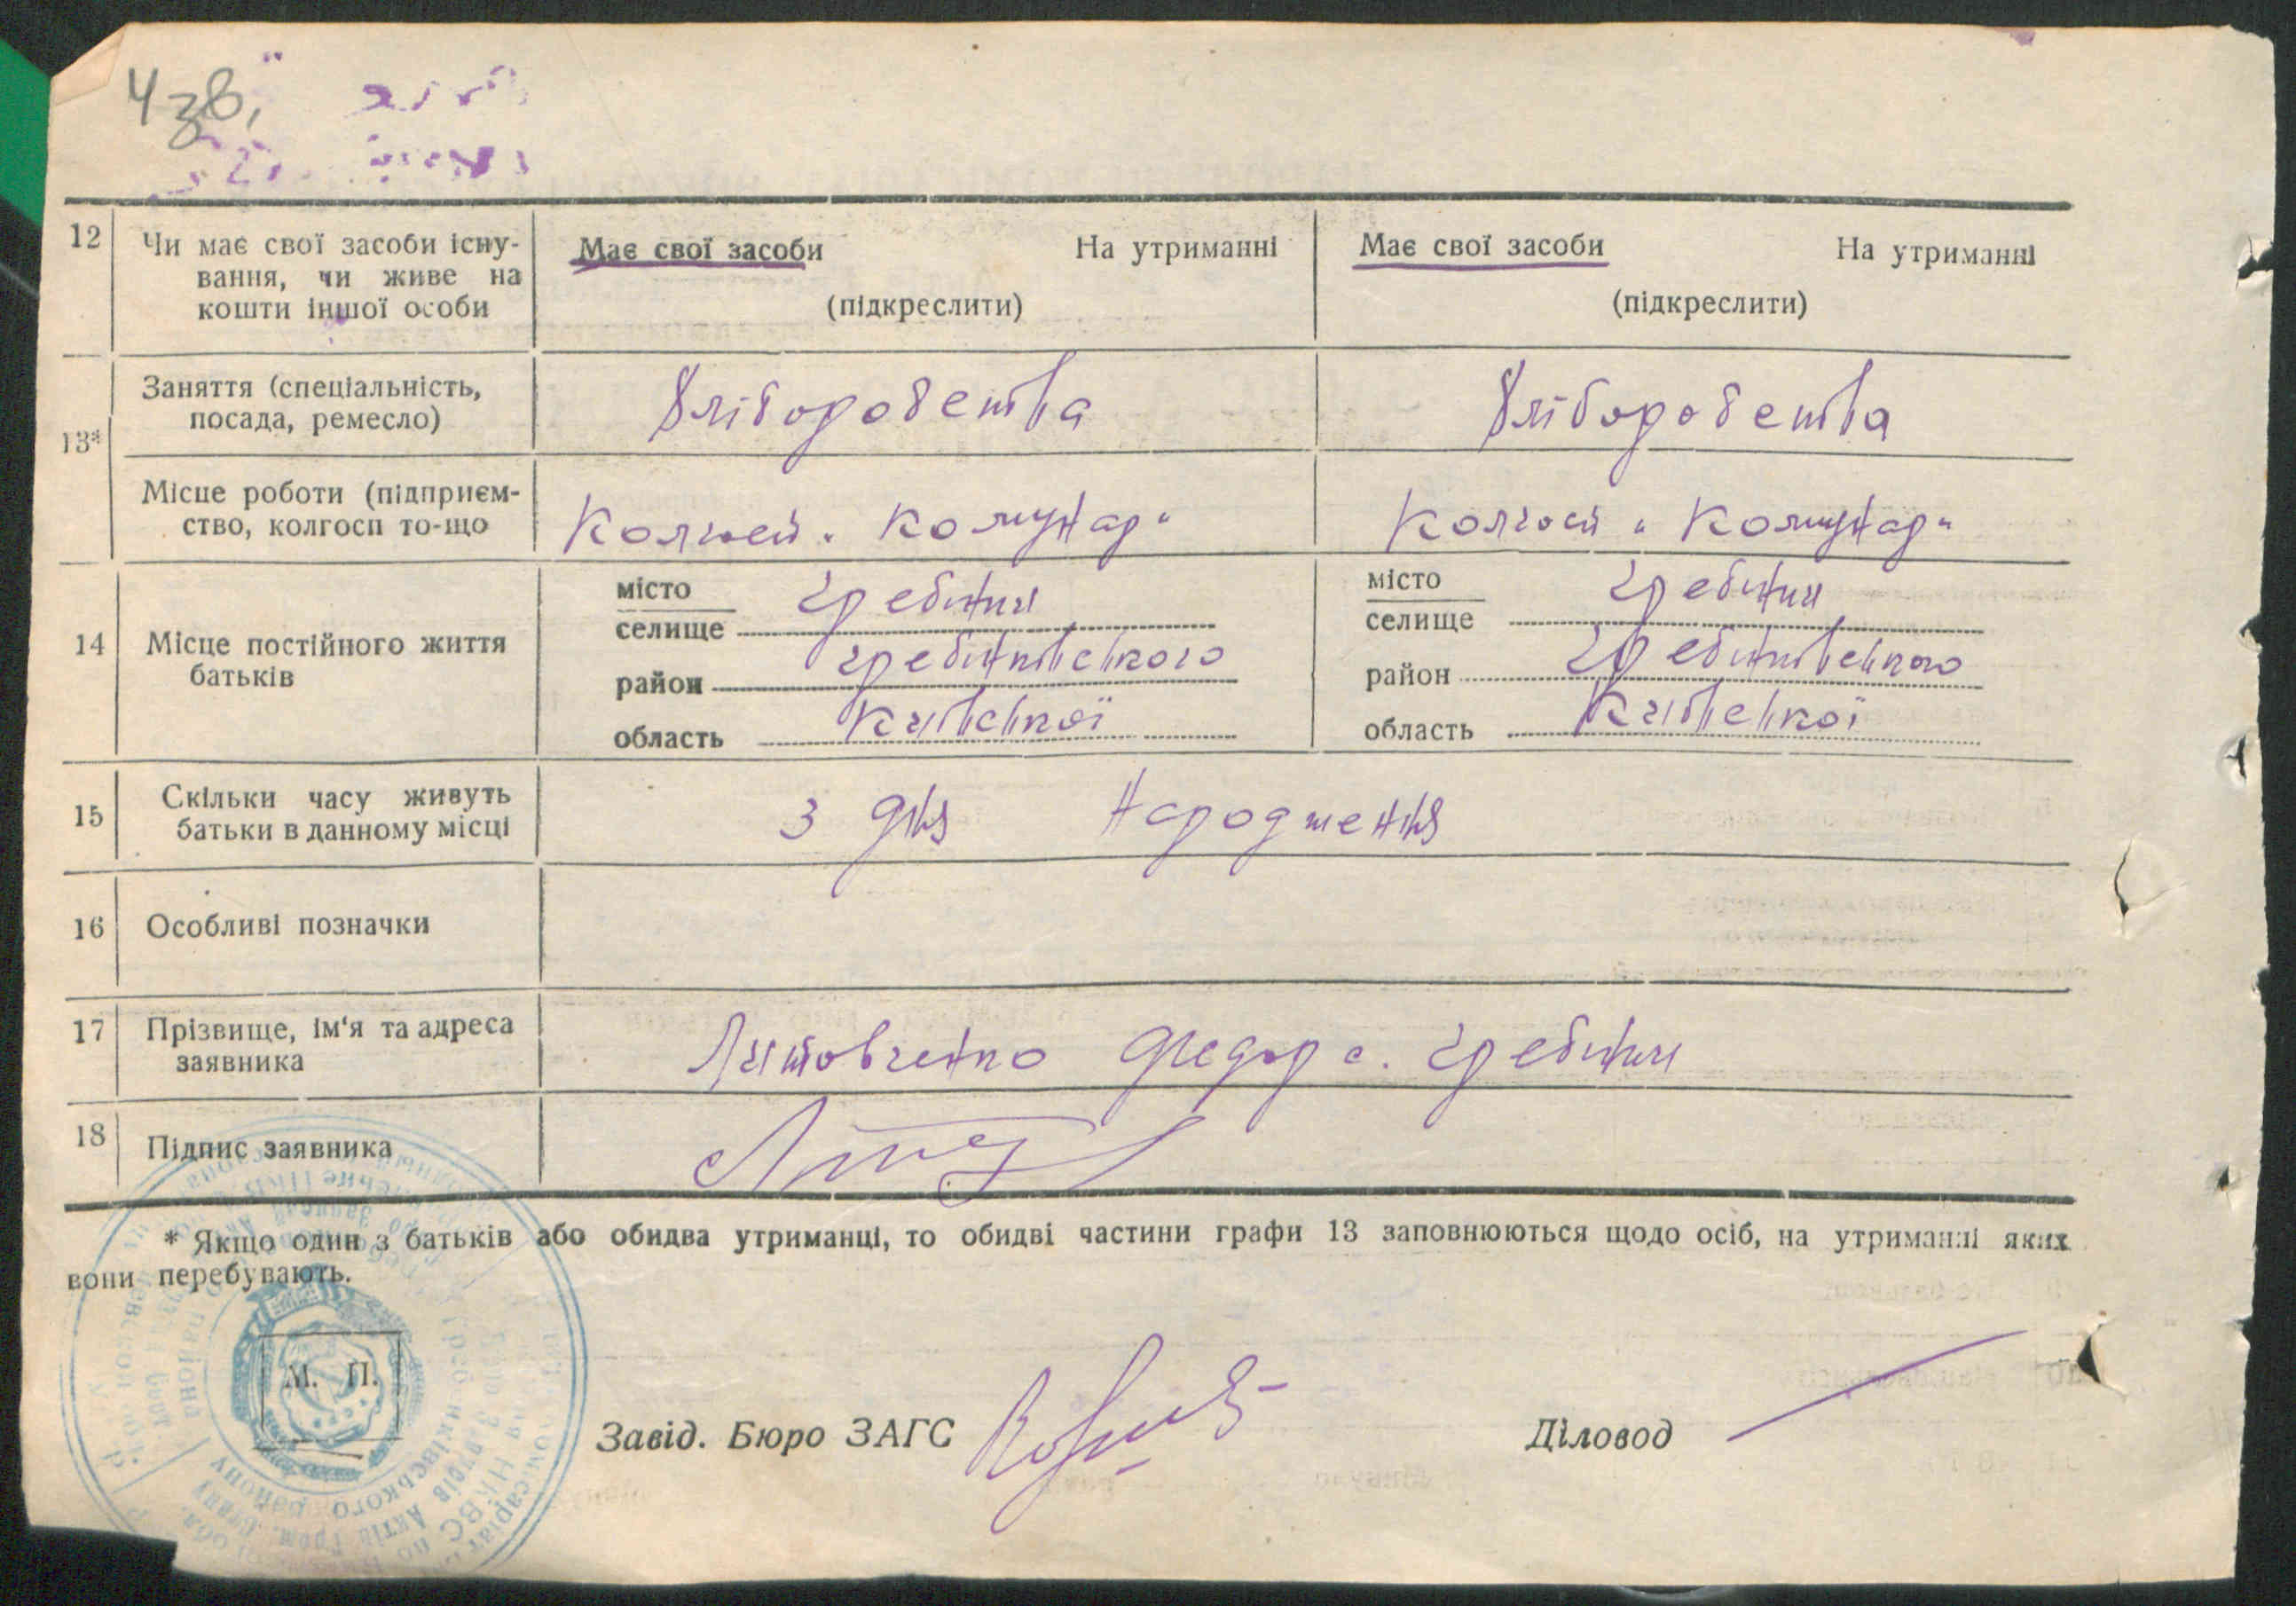 438,
12 Чи має свої засоби існу- Має свої засоби На утриманні Має свої засоби На утриманні
вання, чи живе на
кошти іншої особи (підкреслити) (підкреслити)
13* Заняття (спеціальність, Хліборобства Хліборобства
посада, ремесло)
Місце роботи (підприєм- Колгосп „Комунар“ Колгосп „Комунар“
ство, колгосп то-що
14 Місце постійного життя батьків
місто селище Гребінки місто селище Гребінки
район Гребінківського район Гребінківського
область Київської область Київської
15 Скільки часу живуть З дня народження
батьки в данному місці
16 Особливі позначки
17 Прізвище, ім‘я та адреса Литовченко Федор с. Гребінки
заявника
18 Підпис заявника
* Якщо один з батьків або обидва утриманці, то обидві частини графи 13 заповнюються щодо осіб, на утриманні яких
вони перебувають.
М. П.
Завід. Бюро ЗАГС Діловод